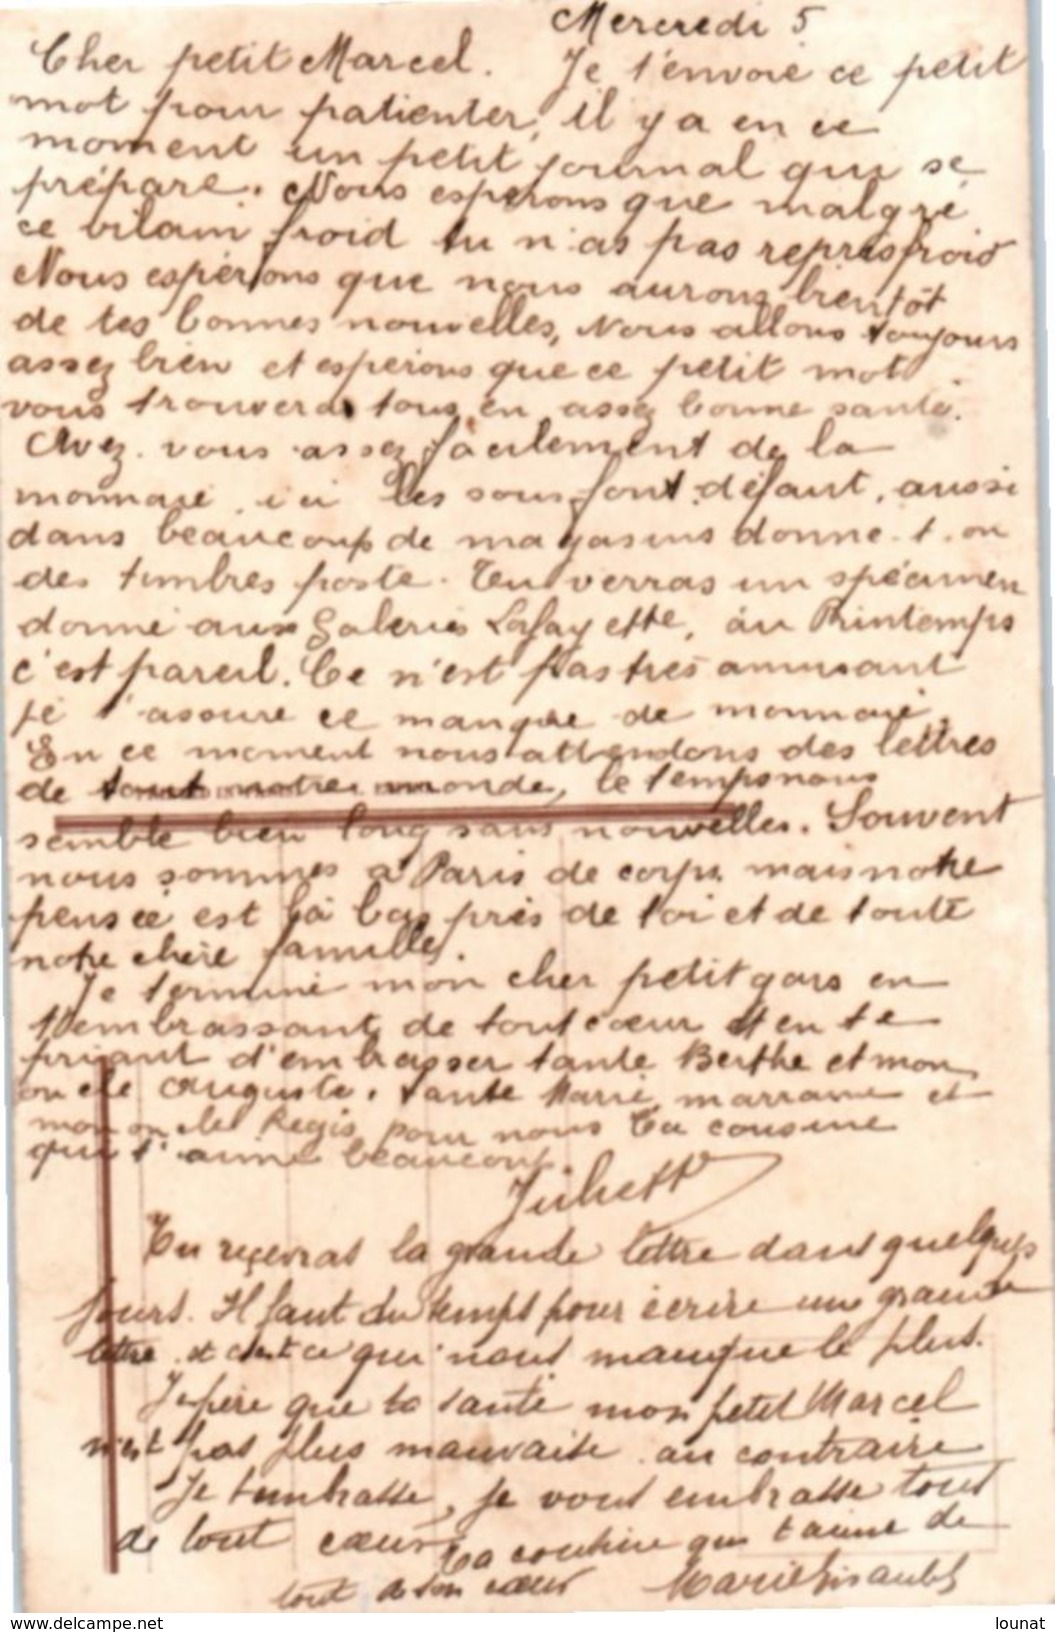 Mercredi 5
Cher petit Marcel. Je t'envoie ce petit
mot pour patienter, il y a en ce
moment un petit journal qui se
prépare. Nous esperons que malgré
ce vilain froid tu n'as pas repris froid
Nous espérons que nous aurons bientôt
de tes bonnes nouvelles, Nous allons toujours
assez bien et esperons que ce petit mot
vous trouvera tous en assez bonne santé.
Avez-vous assez facilement de la
monnaie, ici les sous font défaut, aussi
dans beaucoup de magasins donne-t-on
des timbres poste. Tu verras un spécimen
donné aux Galeries Lafayette, au Printemps
c'est pareil. Ce n'est pas très amusant
je t'assure ce manque de monnaie.
En ce moment nous attendons des lettres
de tout notre monde, le temps nous
semble bien long sans nouvelles. Souvent
nous sommes à Paris de corps mais notre
pensée est là bas près de toi et de toute
notre chère famille.
Je termine mon cher petit gars en
t'embrassant de tout cœur et en te
priant d'embrasser tante Berthe et mon
oncle Auguste. tante Marie marraine et
mon oncle Regis pour nous Ta cousine
qui t'aime beaucoup.
Juliette
Tu recevras la grande lettre dans quelques
jours. Il faut du temps pour écrire une grande
lettre et c'est ce qui nous manque le plus.
J'espère que ta santé mon petit Marcel
n'est pas plus mauvaise au contraire
Je t'embrasse, je vous embrasse tous
de tout cœur
Ta cousine qui t'aime de
tout de son cœur Marie
www.delcampe.net
lounat